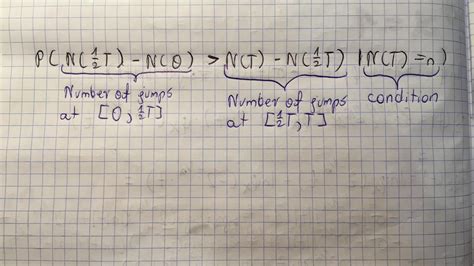 P( N(½T) - N(0) > N(T) - N(½T) | N(T) = n )
Number of jumps
at [0, ½T]
Number of jumps
at [½T, T]
condition